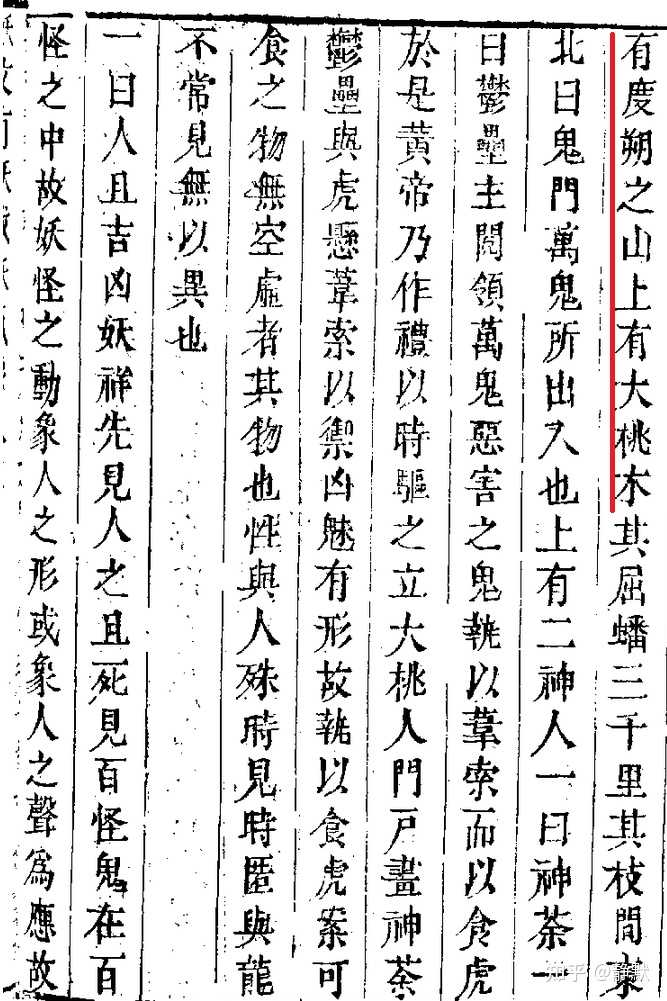 有度朔之山上有大桃木其屈蟠三千里其枝間東
北曰鬼門萬鬼所出入也上有二神人一曰神荼一
曰鬱壘主閱領萬鬼惡害之鬼執以葦索而以食虎
於是黃帝乃作禮以時驅之立大桃人門戸畫神荼
鬱壘與虎懸葦索以禦凶魅有形故執以食虎案可
食之物無空虛者其物也性與人殊時見時匿與龍
不常見無以異也
一曰人且吉凶妖祥先見人之且死見百怪鬼在百
怪之中故妖怪之動象人之形或象人之聲爲應故
知乎 @静默